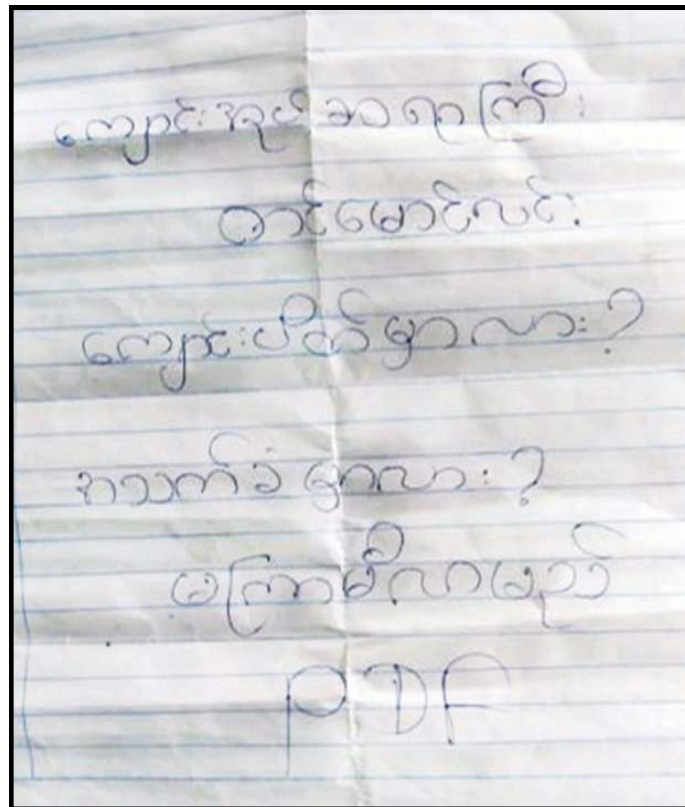 ကျောင်းအုပ်ဆရာကြီး
တင်မောင်လင်း
ကျောင်းပိတ်မှာလား?
အသက်ခံမှာလား?
မကြာမီလာမည်
PDF